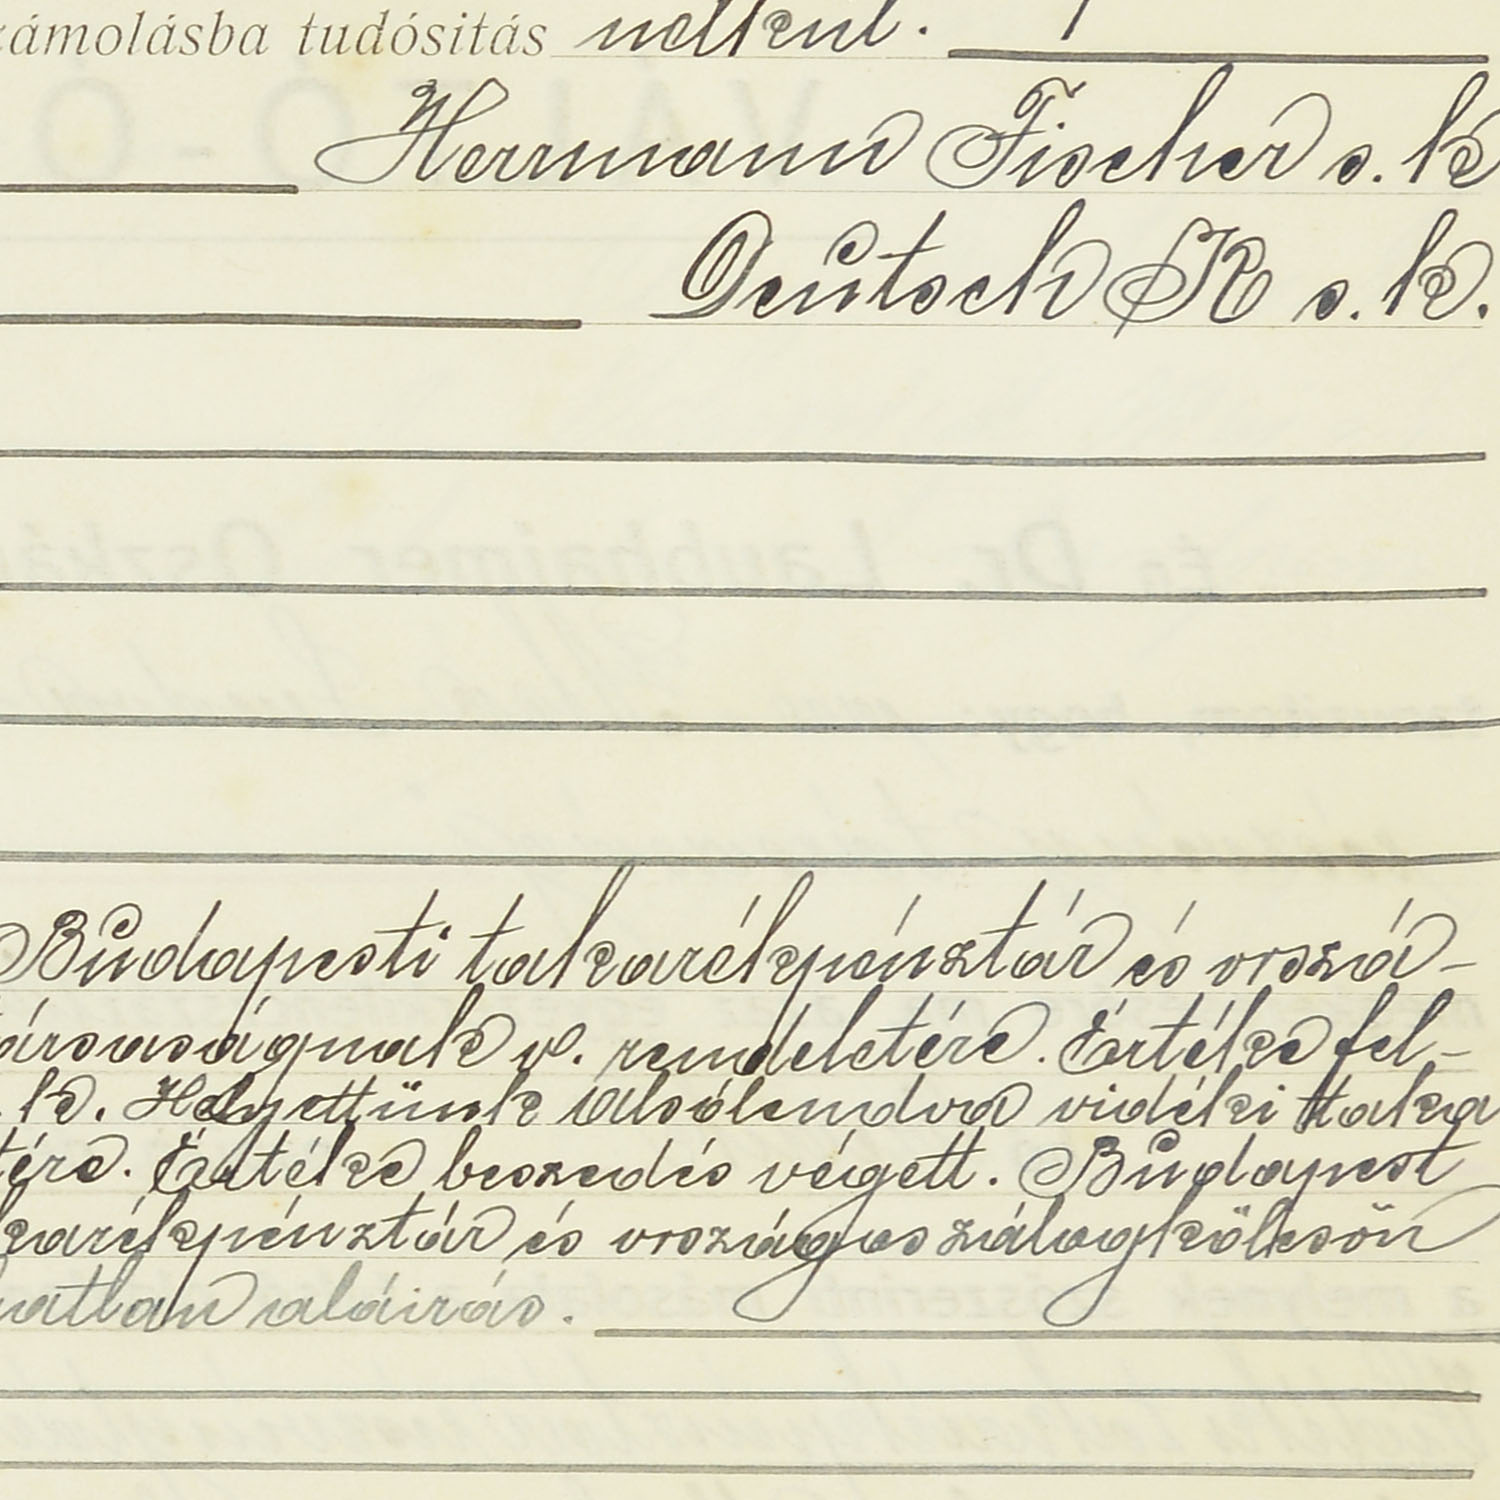 számolásba tudósitás nélkül.
Herrmann Fischer s. k
Deutsch K s. k.
Budapesti takarékpénztár és orszá-
társaságnak v. rendeletére. Értéke fel-
k. Helyettünk Alsólendva vidéki taka
tére. Értéke beszedés végett. Budapest
karékpénztár és országos zálogkölcsön
aláirás.